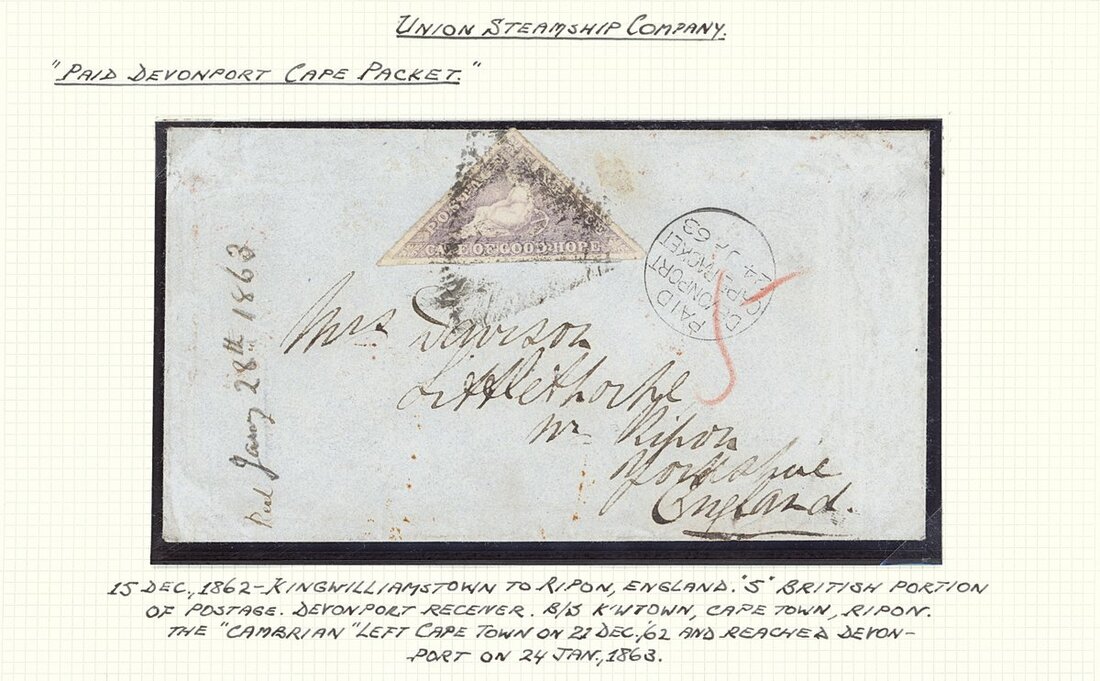 UNION STEAMSHIP COMPANY.
"PAID DEVONPORT CAPE PACKET."
POSTAGE
CAPE OF GOOD HOPE
PAID
DEVONPORT
CAPE PACKET
24 JA 63
5
Recd Jany 28th 1863
Mrs Davison
Littlethorpe
nr Ripon
Yorkshire
England.
15 DEC., 1862-KINGWILLIAMSTOWN TO RIPON, ENGLAND. "5" BRITISH PORTION
OF POSTAGE. DEVONPORT RECEIVER. B/S K'WTOWN, CAPE TOWN, RIPON.
THE "CAMBRIAN" LEFT CAPE TOWN ON 21 DEC.,'62 AND REACHED DEVON-
PORT ON 24 JAN., 1863.